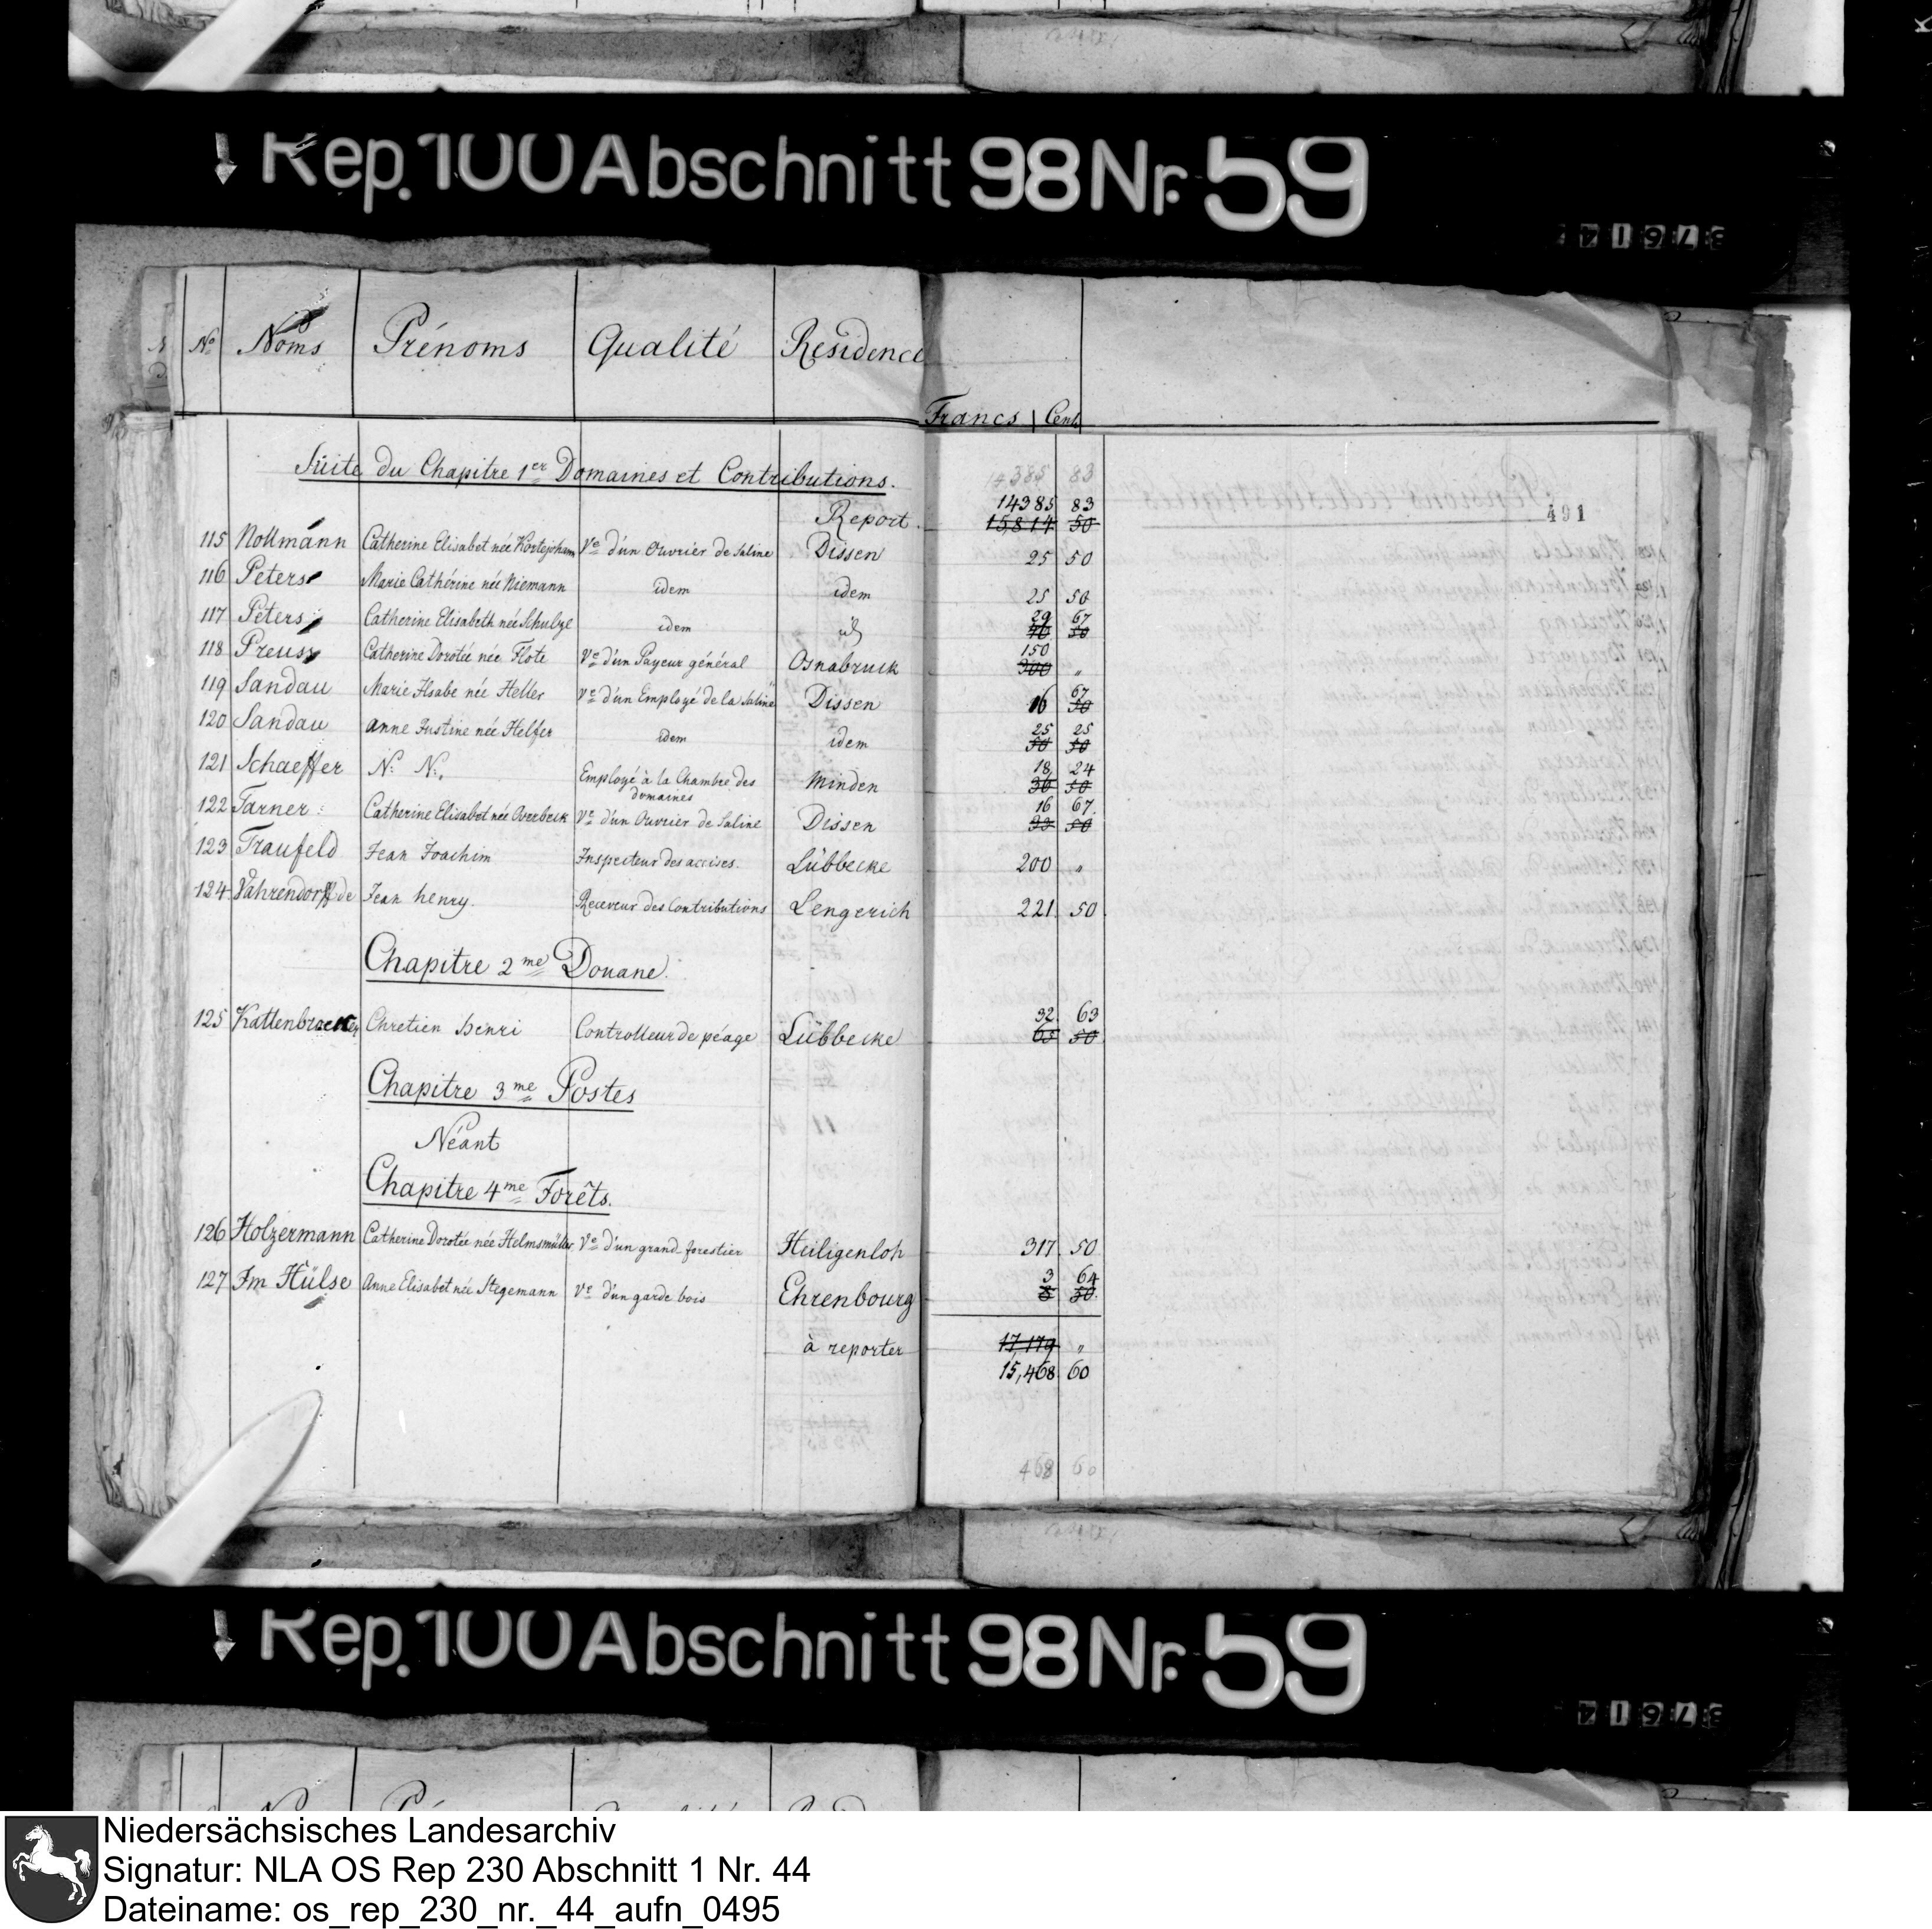 Rep. 100 Abschnitt 98 Nr. 59
37614
No Noms Prénoms Qualité Residence
Francs Cent
Suite du Chapitre 1er Domaines et Contributions.
14385 83
Report. 14385 83
15,814 50
491
115 Nollmann Catherine Elisabet née Kortejohann Ve d'un Ouvrier de Saline Dissen 25 50
116 Peters Marie Cathérine née Niemann idem idem 25 50
117 Peters Catherine Elisabeth née Schulze idem id 29 67
118 Preuss Catherine Dorotée née Flote Ve d'un Payeur général Osnabruck 150 "
300
119 Sandau Marie Ilsabe née Heller Ve d'un Employé de la Saline Dissen 16 67
50
120 Sandau anne Justine née Helfer idem idem 25 25
50 50
121 Schaeffer N. N. Employé à la Chambre des domaines Minden 18 24
36 50
122 Tarner Catherine Elisabet née Overbeck Ve d'un Ouvrier de Saline Dissen 16 67
33 50
123 Traufeld Jean Joachim Inspecteur des accises. Lübbecke 200 "
124 Vahrendorff de Jean henry. Receveur des Contributions Lengerich 221 50
Chapitre 2me Douane.
125 Kattenbracker Chretien henri Controlleur de péage Lübbecke 32 63
65 50
Chapitre 3me Postes
Néant
Chapitre 4me Forêts.
126 Holzermann Catherine Dorotée née Helmsmüller Ve d'un grand forestier Heiligenloh 317 50
127 Im Hülse Anne Elisabet née Stegemann Ve d'un garde bois Ehrenbourg 3 64
50
à reporter 17,179 "
15,468 60
468 60
Rep. 100 Abschnitt 98 Nr. 59
37614
Niedersächsisches Landesarchiv
Signatur: NLA OS Rep 230 Abschnitt 1 Nr. 44
Dateiname: os_rep_230_nr._44_aufn_0495